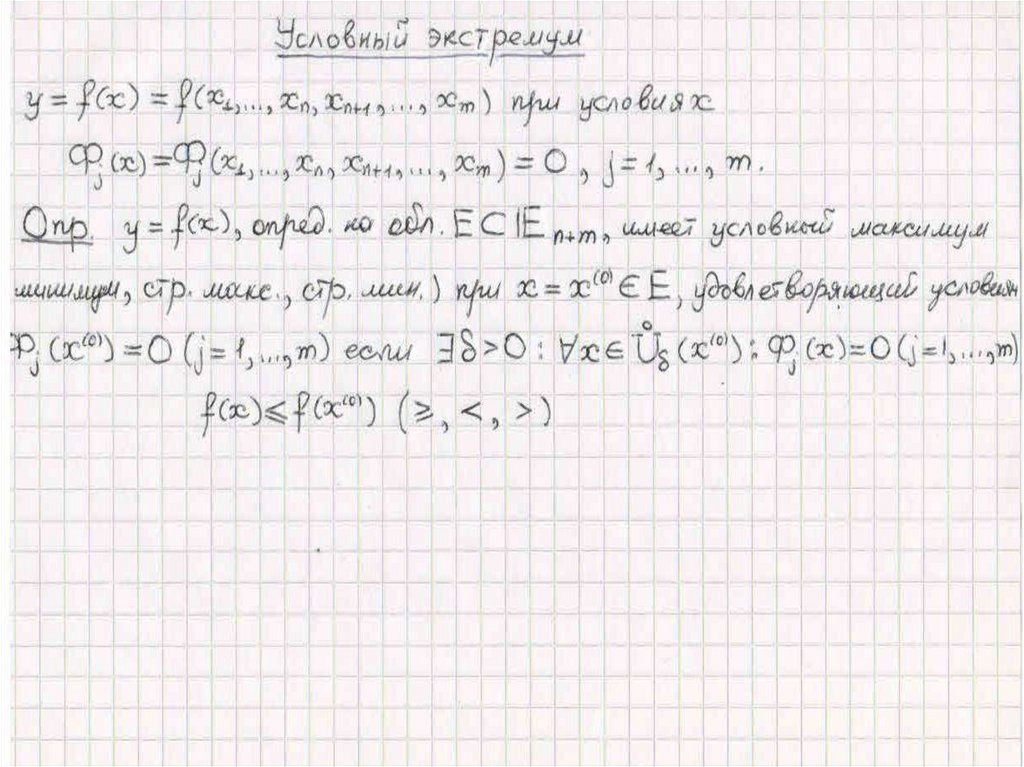 Условный экстремум
y = f(x) = f(x₁,..., xₙ, xₙ₊₁,..., xₘ) при условиях
Фⱼ(x) = Фⱼ(x₁,..., xₙ, xₙ₊₁,..., xₘ) = 0, j = 1, ..., m.
Опр. y = f(x), опред. на обл. E ⊂ 𝔼ₙ₊ₘ, имеет условный максимум
минимум, стр. макс., стр. мин.) при x = x⁽⁰⁾ ∈ E, удовлетворяющий условиям
Фⱼ(x⁽⁰⁾) = 0 (j = 1, ..., m) если ∃δ > 0 : ∀x ∈ Ů_δ(x⁽⁰⁾) : Фⱼ(x) = 0 (j = 1, ..., m)
f(x) ⩽ f(x⁽⁰⁾) (⩾, <, >)